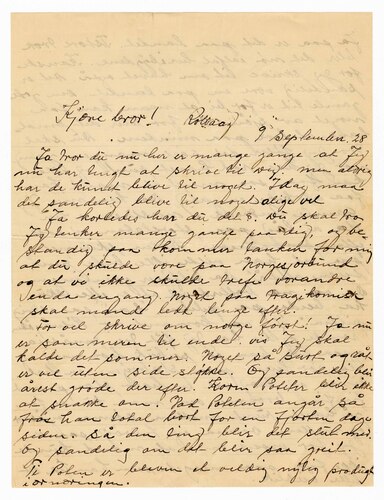 Kjære bror! Rollaag
9 September. 28
Ja tror du nu har er mange gange at Jeg
nu har tengt at skrive til dig, men aldrig
har de kunt blive til noget. Idag maa
det sandelig blive til noget alige vel
Ja korledes har du det 8. Du skal tro
Jeg tenker mange gange paa dig og be
standig saa kommer tanken for mig
at du skulde vore paa Norgesjorbund
og at vi ikke skulde trefe vorandre
enda engang. Noget saa
skal mand lede lenge efter.
For vil skrive om norge först. Ja nu
er someren til ende, vis Jeg skal
kalde det sommer. Noget så surt og
er vel uten side stykke. Og sandelig blir
årest gröde der efter. Korn Poteter blir ikke
at snakke om. Ved Poteten angår så
frös han total bort for en fjorten dage
siden. Så den ting blir det slut med.
Og sandelig om det blir saa greit.
Ti Poten er bleven et veldig nytig produgt
i ernæringen.